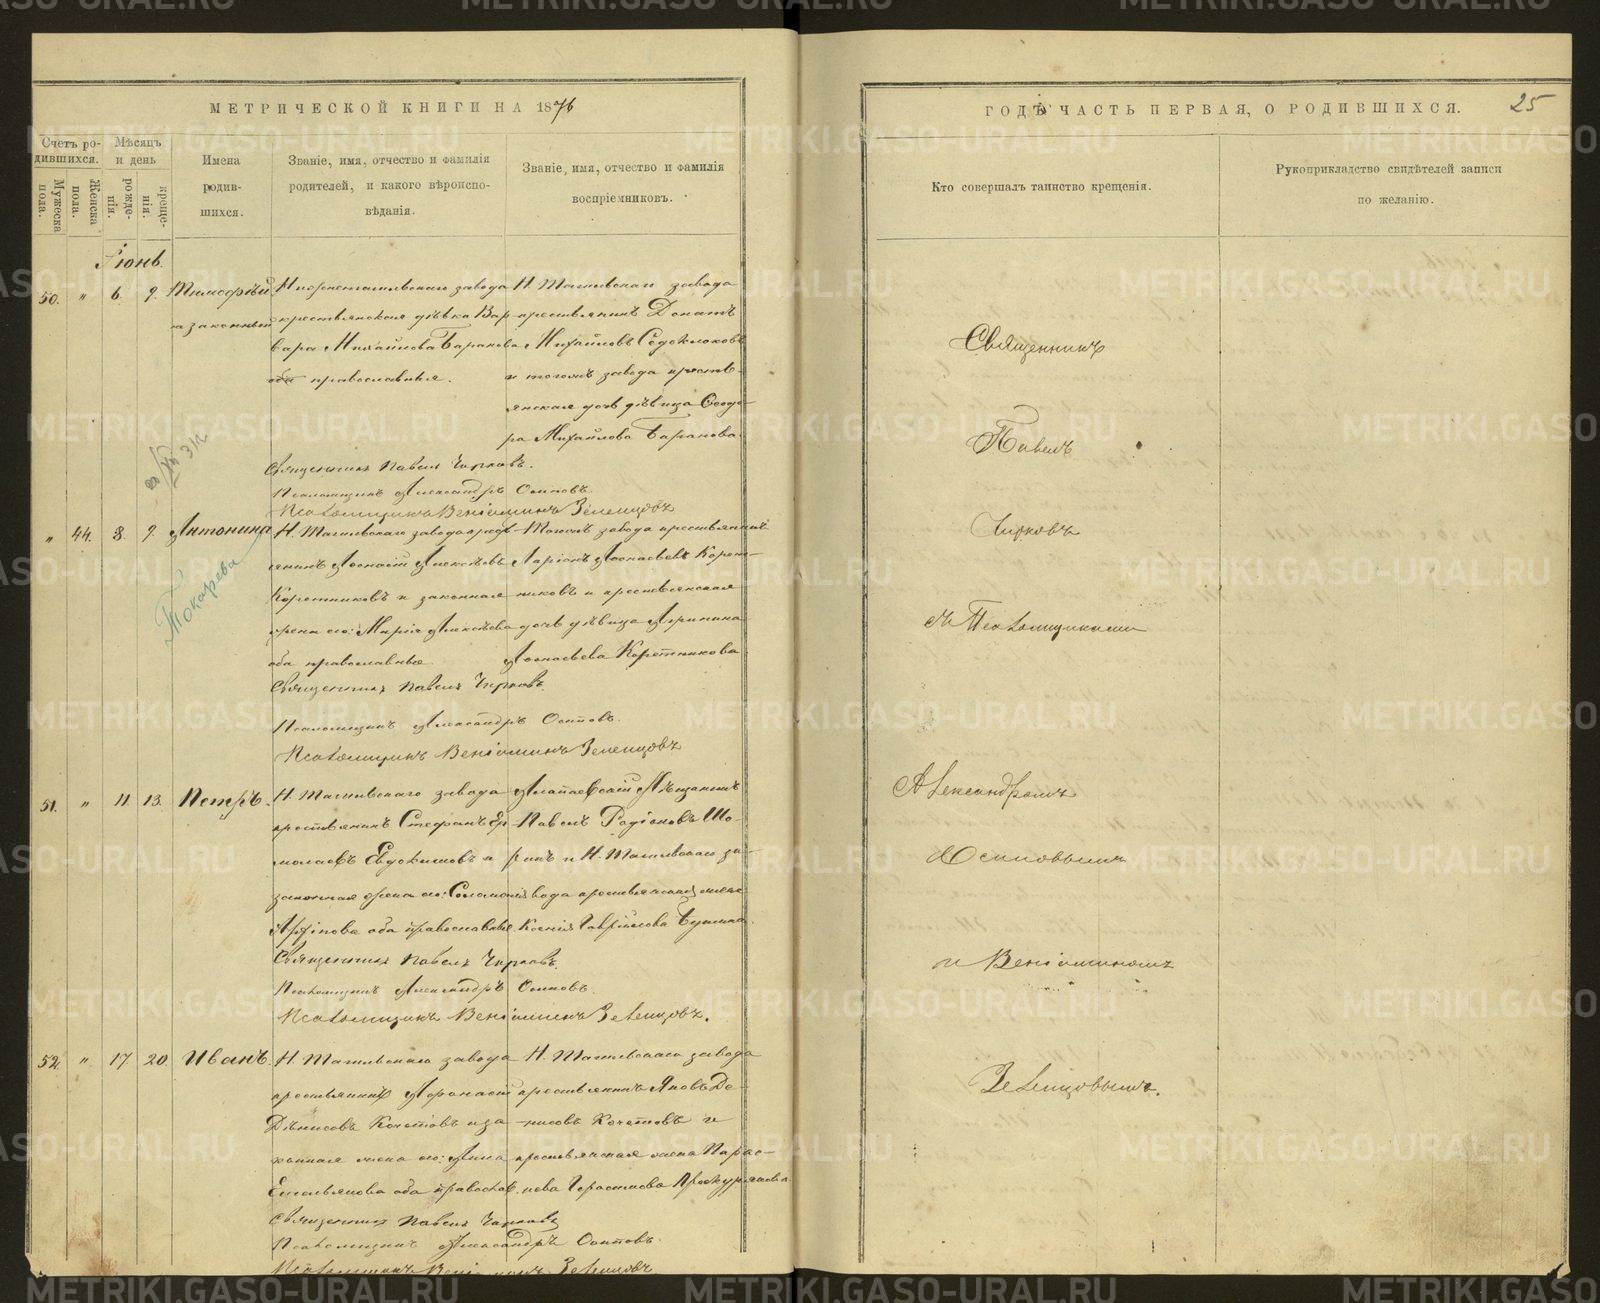 МЕТРИЧЕСКОЙ КНИГИ НА 1876
Счетъ родившихся.
Мужеска пола.
Женска пола.
Мѣсяцъ и день
рожденія.
крещенія.
Имена родившихся.
Званіе, имя, отчество и фамилія родителей, и какого вѣроисповѣданія.
Званіе, имя, отчество и фамилія воспріемниковъ.
Іюнь.
50. " 6. 9. Тимофѣй
незаконный
Нижнетагильскаго завода
крестьянская дѣвка Вар
вара Михайлова Баранова
православная.
Н. Тагильскаго завода
крестьянинъ Донатъ
Михайловъ
и тогожъ завода кресть-
янская дочь дѣвица Феодо-
ра Михайлова Баранова.
Священникъ Павелъ Чирковъ.
Псаломщикъ Александръ Осиповъ.
Псаломщикъ Веніаминъ Зеленцовъ
" 44. 8. 9. Антонина
Токарева
Н. Тагильскаго завода крест-
янинъ Алексѣевъ
Коретниковъ и законная
жена его: Марія Алексѣева
оба православные.
Тогожъ завода крестьянинъ
Ларіонъ Корет-
никовъ и крестьянская
дочь дѣвица
Коретникова
Священникъ Павелъ Чирковъ.
Псаломщикъ Александръ Осиповъ.
Псаломщикъ Веніаминъ Зеленцовъ
51. " 11. 13. Петръ.
Н. Тагильскаго завода
крестьянинъ Стефанъ Ер-
молаевъ Евдокимовъ и
законная жена его: Соломонія
оба православные
Алапаевскій Мѣщанинъ
Павелъ Родіоновъ
и Н. Тагильскаго за-
вода крестьянская жена
Ксенія Гаврилова
Священникъ Павелъ Чирковъ.
Псаломщикъ Александръ Осиповъ.
Псаломщикъ Веніаминъ Зеленцовъ.
52. " 17 20. Иванъ.
Н. Тагильскаго завода
крестьянинъ
Денисовъ Кочетовъ и за-
конная жена его: Анна
Емельянова оба правосл.
Н. Тагильскаго завода
крестьянинъ Яковъ Де-
нисовъ Кочетовъ и
крестьянская жена Парас-
кева Герасимова Проскурякова
Священникъ Павелъ Чирковъ
Псаломщикъ Александръ Осиповъ.
Псаломщикъ Веніаминъ Зеленцовъ
ГОДЪ ЧАСТЬ ПЕРВАЯ, О РОДИВШИХСЯ.
25
Кто совершалъ таинство крещенія.
Рукоприкладство свидѣтелей записи по желанію.
Священникъ
Павелъ
Чирковъ
съ Псаломщиками
Александромъ
Осиповымъ
и Веніаминомъ
Зеленцовымъ.
METRIKI.GASO-URAL.RU